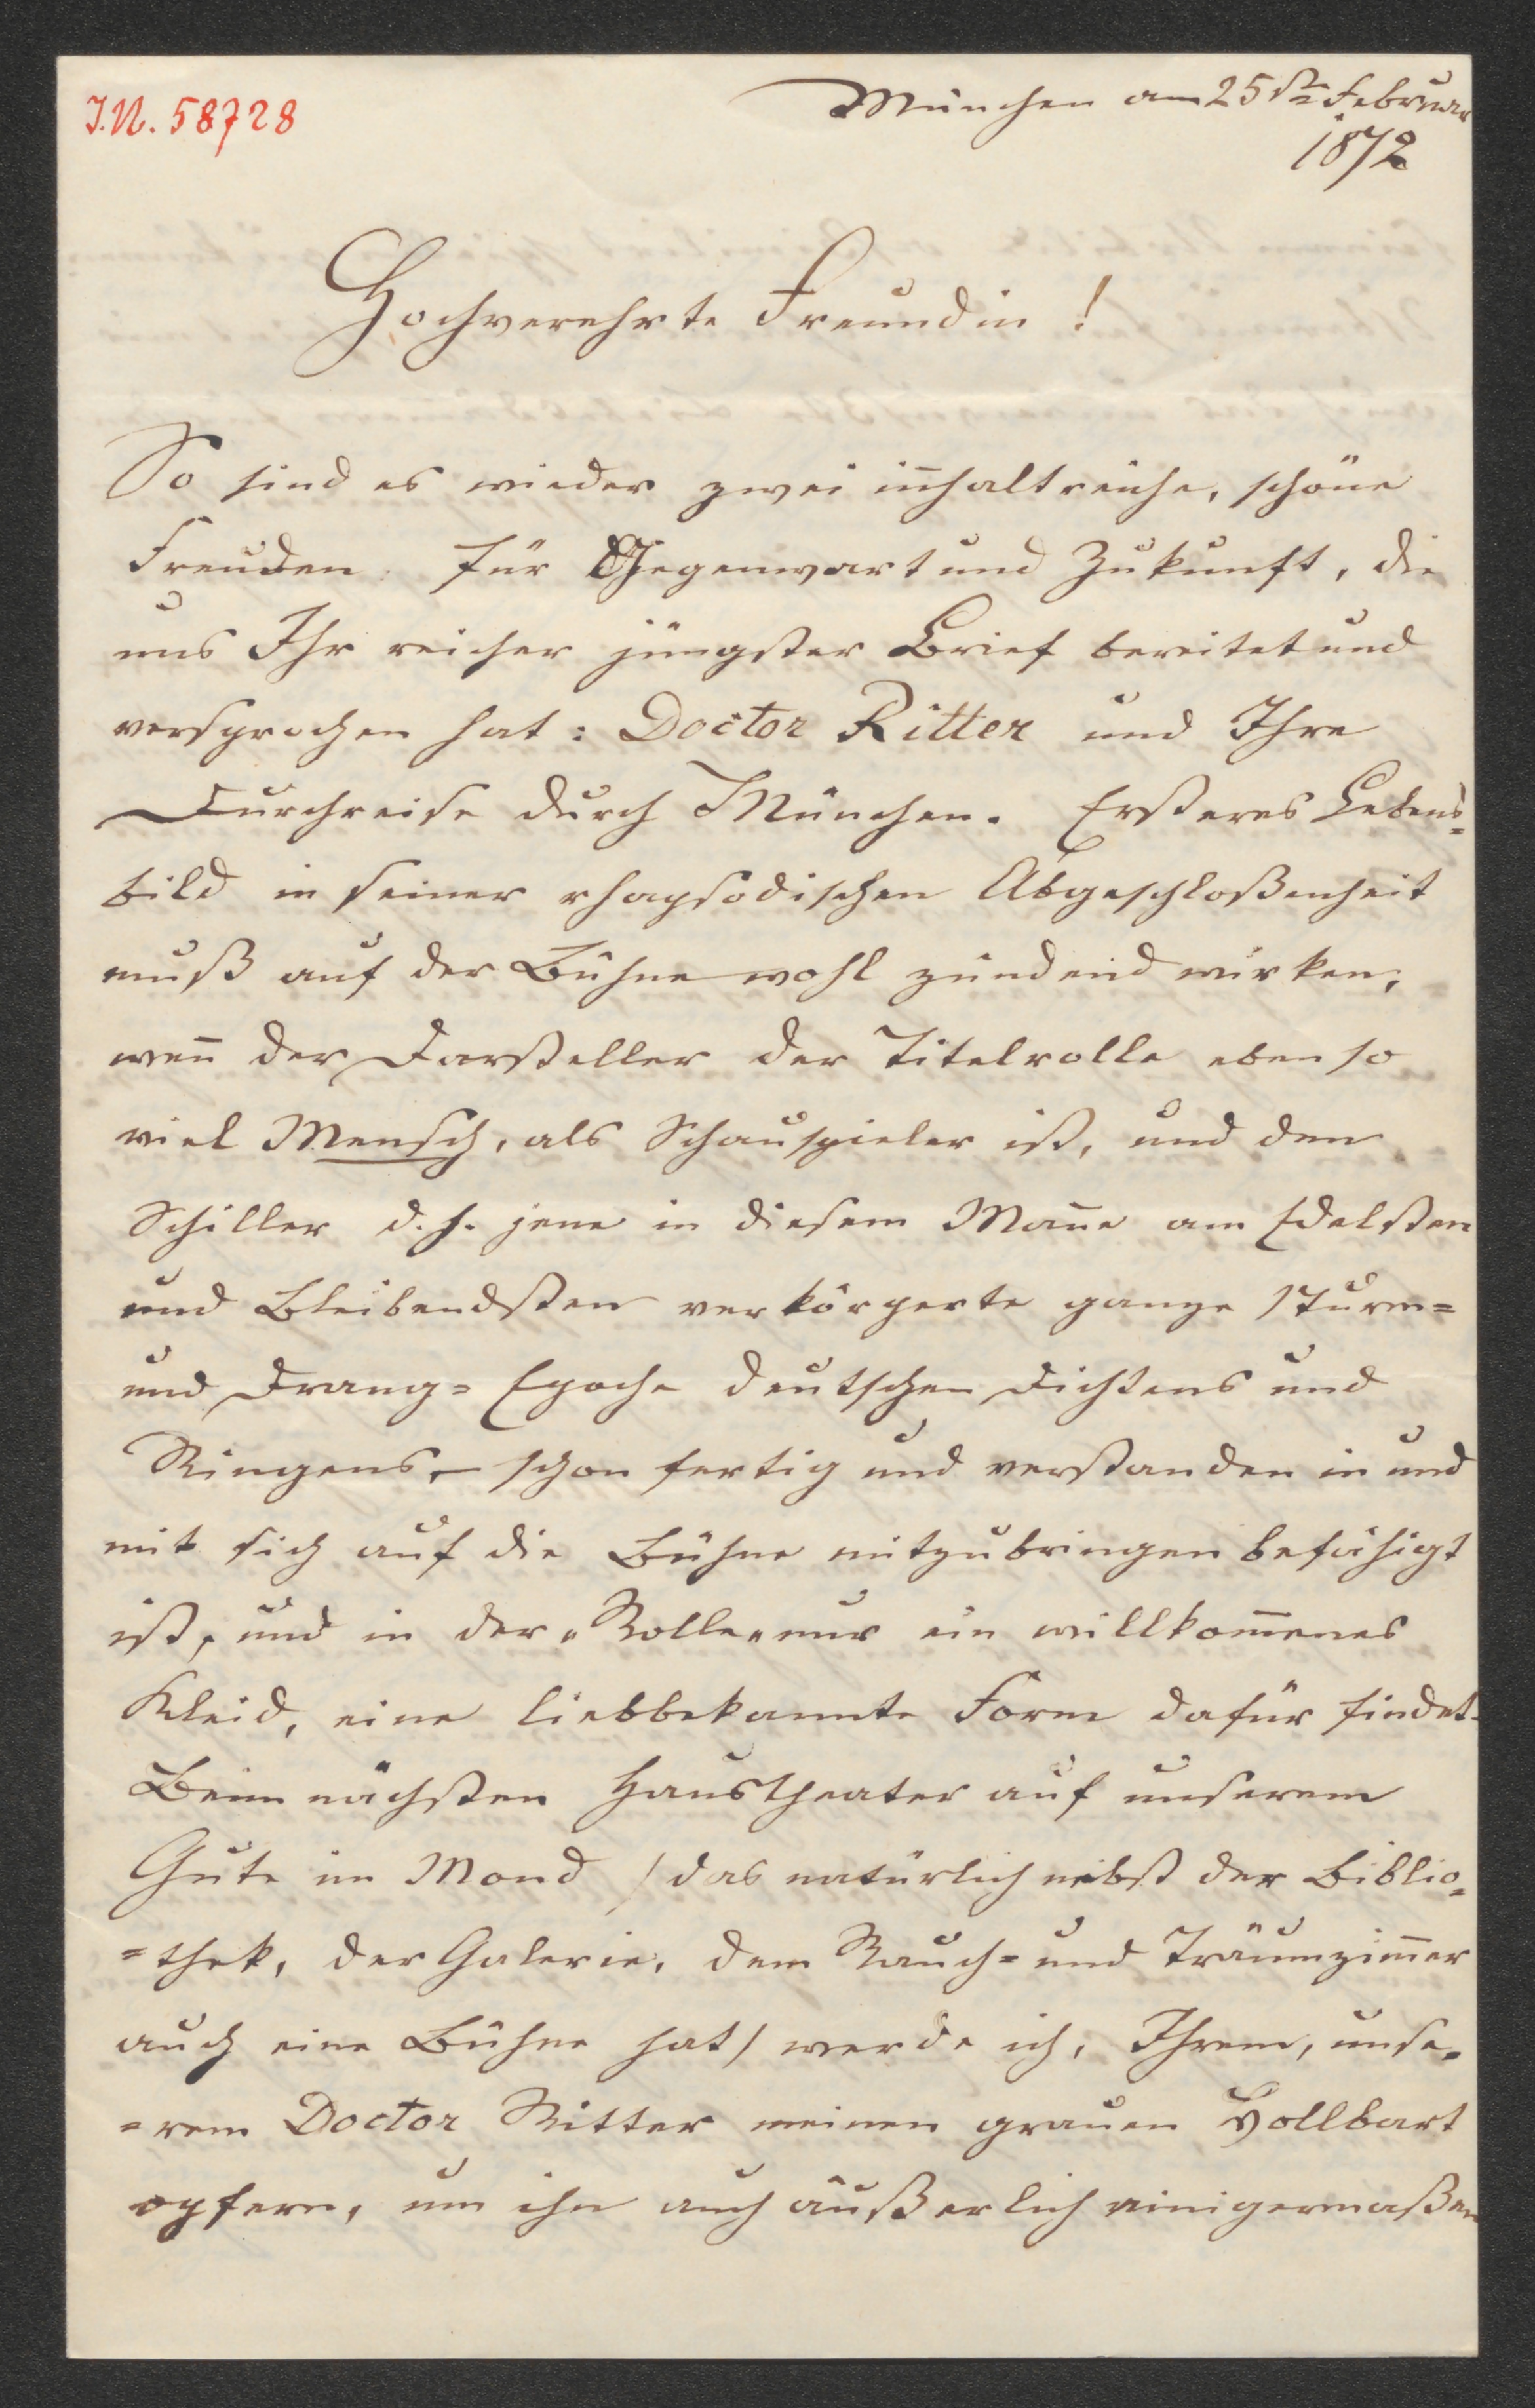 I.N. 58728
München am 25ten Februar
1872
Hochverehrte Freundin!
So sind es wieder zwei in̄haltreiche, schöne
Freuden für Gegenwart und Zukunft, die
uns Ihr reicher jüngster Brief bereitet und
versprochen hat: Doctor Ritter und Ihre
Durchreise durch München. Ersteres Lebens=
bild in seiner rhapsodischen Abgeschloßenheit
muß auf der Bühne wohl zündend wirken,
wen̄ der Darsteller der Titelrolle eben so
viel Mensch, als Schauspieler ist, und den
Schiller d. h. jene in diesem Man̄e am Edelsten
und Bleibendsten verkörperte ganze Sturm=
und Drang=Epoche deutschen Dichtens und
Ringens, – schon fertig und verstanden in und
mit sich auf die Bühne mitzubringen befähigt
ist, und in der „Rolle„ nur ein willkom̄enes
Kleid, eine liebbekannte Form dafür findet.
Beim nächsten Haustheater auf unserem
Gute im Mond / das natürlich nebst der Biblio=
=thek, der Galerie, dem Rauch= und Träumzim̄er
auch eine Bühne hat / werde ich, Ihrem, unse=
=rem Doctor Ritter meinen grauen Vollbart
opfern, um ihn auch äußerlich einigermaßen